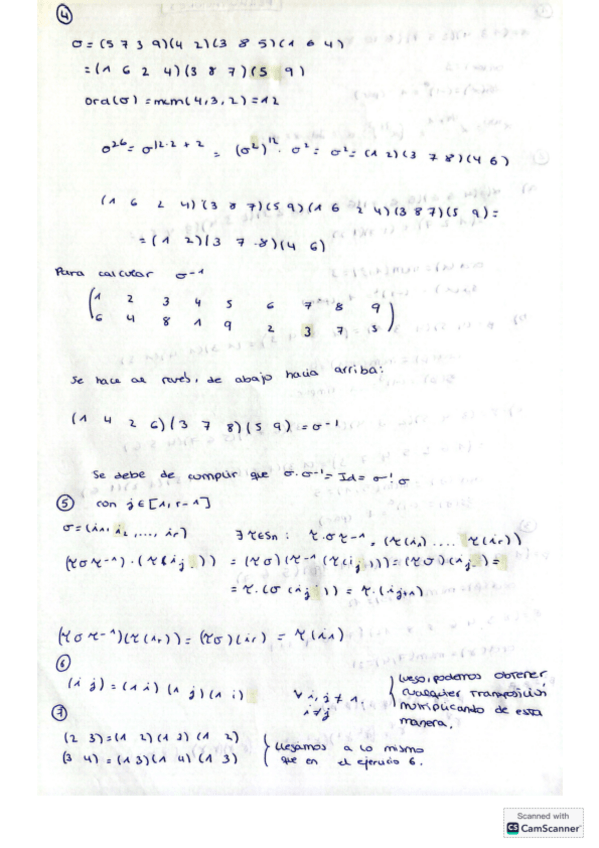 ④
σ = (5 7 3 9)(4 2)(3 8 5)(1 6 4)
= (1 6 2 4)(3 8 7)(5 9)
ord(σ) = mcm(4,3,2) = 12
σ²⁶ = σ¹²·² ⁺ ² = (σ²)¹² · σ² = σ² = (1 2)(3 7 8)(4 6)
(1 6 2 4)(3 8 7)(5 9)(1 6 2 4)(3 8 7)(5 9) =
= (1 2)(3 7 8)(4 6)
Para calcular σ⁻¹
1 2 3 4 5 6 7 8 9
6 4 8 1 9 2 3 7 5
Se hace al revés, de abajo hacia arriba:
(1 4 2 6)(3 7 8)(5 9) = σ⁻¹
Se debe de cumplir que σ·σ⁻¹ = Id = σ⁻¹ σ
⑤ con j ∈ [1, r-1]
σ = (i₁, i₂, ..., iᵣ) ∃ τ ∈ Sn : τ·σ τ⁻¹ = (τ(i₁) .... τ(iᵣ))
(τ σ τ⁻¹)·(τ(i_j)) = (τ σ)(τ⁻¹(τ(i_j))) = (τ σ)(i_j) =
= τ·(σ(i_j)) = τ·(i_j+1)
(τ σ τ⁻¹)(τ(iᵣ)) = (τ σ)(iᵣ) = τ(i₁)
⑥
(i j) = (1 i)(1 j)(1 i) ∀ i, j ≠ 1, i ≠ j
Luego, podemos obtener
cualquier transposición
multiplicando de esta
manera.
⑦
(2 3) = (1 2)(1 3)(1 2)
(3 4) = (1 3)(1 4)(1 3)
Llegamos a lo mismo
que en el ejercicio 6.
Scanned with
CS CamScanner